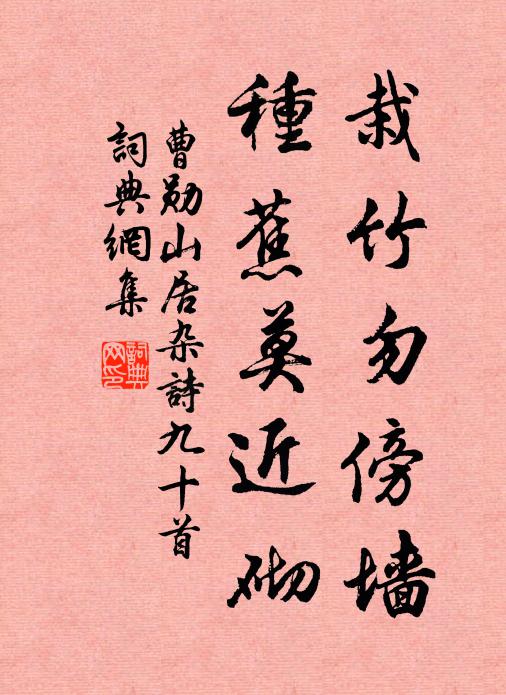 栽竹勿傍墙
種蕉莫近砌
曹勛山居杂詩九十首
詞典網集
詞典网印